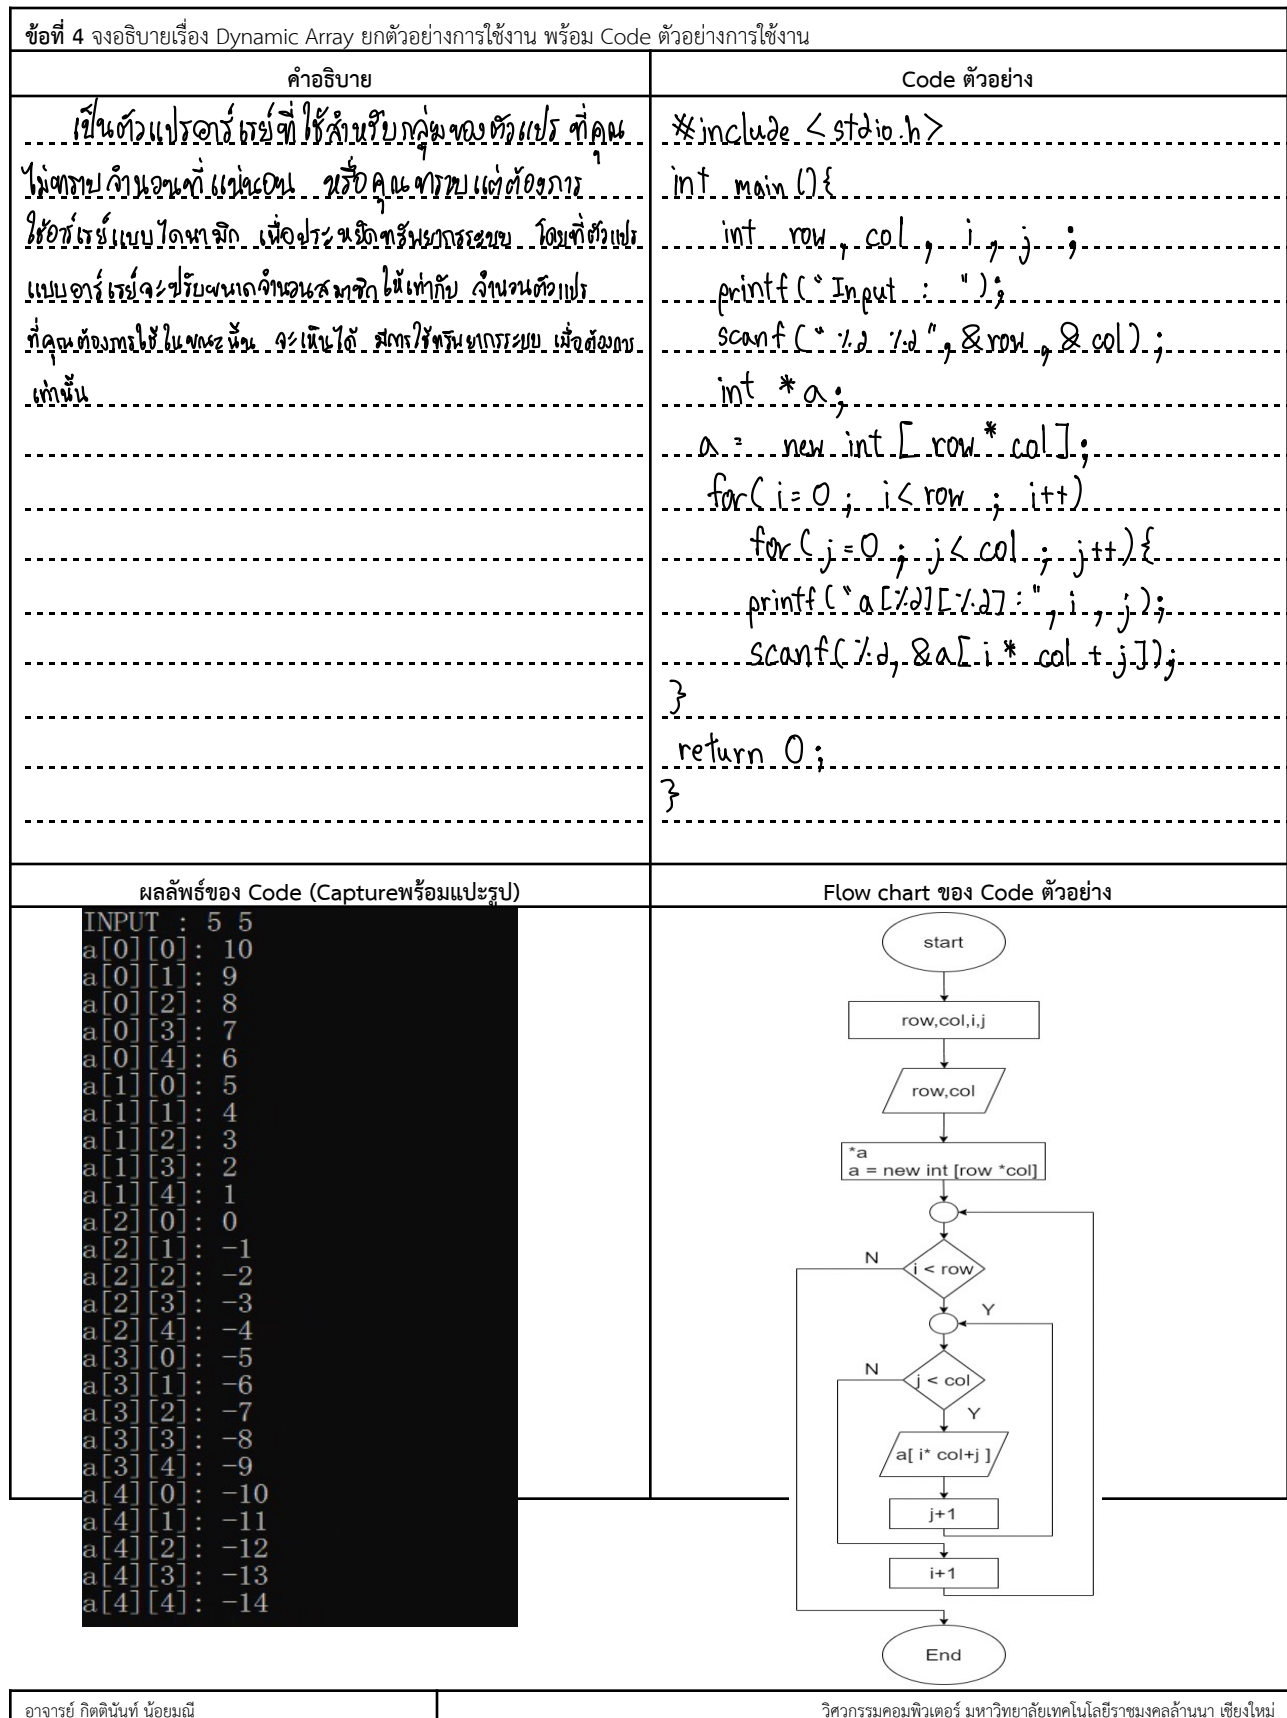 ข้อที่ 4 จงอธิบายเรื่อง Dynamic Array ยกตัวอย่างการใช้งาน พร้อม Code ตัวอย่างการใช้งาน
คำอธิบาย
เป็นตัวแปรอาร์เรย์ที่ใช้สำหรับกลุ่มของตัวแปร ที่คุณ
ไม่ทราบจำนวนที่แน่นอน หรือคุณทราบแต่ต้องการ
ใช้อาร์เรย์แบบไดนามิก เพื่อประหยัดทรัพยากรระบบ โดยที่ตัวแปร
แบบอาร์เรย์จะปรับขนาดจำนวนสมาชิกให้เท่ากับ จำนวนตัวแปร
ที่คุณต้องการใช้ในขณะนั้น จะเห็นได้ มีการใช้ทรัพยากรระบบ เมื่อต้องการ
เท่านั้น
Code ตัวอย่าง
#include <stdio.h>
int main (){
int row, col, i, j ;
printf("Input : ");
scanf("%d %d", &row, &col);
int *a;
a = new int [row * col];
for( i=0; i< row ; i++)
for( j=0; j< col ; j++){
printf("a[%d][%d]:", i, j);
scanf(%d, &a[i * col + j]);
}
return 0;
}
ผลลัพธ์ของ Code (Captureพร้อมแปะรูป)
INPUT : 5 5
a[0][0]: 10
a[0][1]: 9
a[0][2]: 8
a[0][3]: 7
a[0][4]: 6
a[1][0]: 5
a[1][1]: 4
a[1][2]: 3
a[1][3]: 2
a[1][4]: 1
a[2][0]: 0
a[2][1]: -1
a[2][2]: -2
a[2][3]: -3
a[2][4]: -4
a[3][0]: -5
a[3][1]: -6
a[3][2]: -7
a[3][3]: -8
a[3][4]: -9
a[4][0]: -10
a[4][1]: -11
a[4][2]: -12
a[4][3]: -13
a[4][4]: -14
Flow chart ของ Code ตัวอย่าง
start
row,col,i,j
row,col
*a
a = new int [row *col]
N
i < row
Y
N
j < col
Y
a[ i* col+j ]
j+1
i+1
End
อาจารย์ กิตตินันท์ น้อยมณี
วิศวกรรมคอมพิวเตอร์ มหาวิทยาลัยเทคโนโลยีราชมงคลล้านนา เชียงใหม่